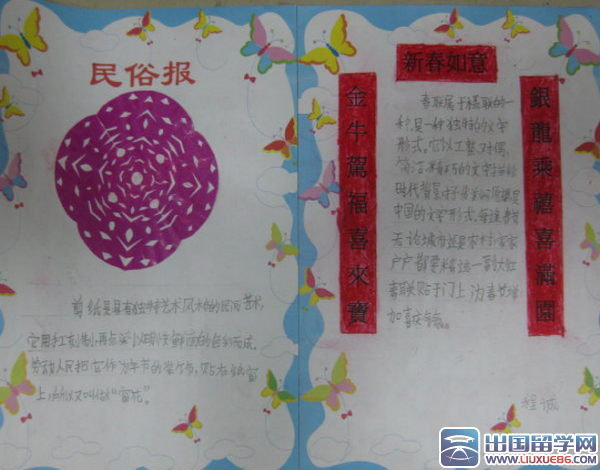 民俗报
剪纸是具有独特艺术风格的民间艺术,
它用手工刻制,再点染以明快鲜丽的色彩而成。
劳动人民把它作为年节的装饰,贴在纸窗
上,所以又叫做“窗花”。
新春如意
金牛駕福喜來寶
銀龍乘禧喜滿園
春联属于楹联的一
种,是一种独特的文字
形式。它以工整、对偶、
简洁、精巧的文字描绘
时代背景,抒发美好愿望,是
中国的文学形式。每逢春节
无论城市还是农村,家家
户户都要精选一副大红
春联贴于门上,为春节增
加喜庆气氛。
程诚
出国留学网
WWW.LIUXUE86.COM